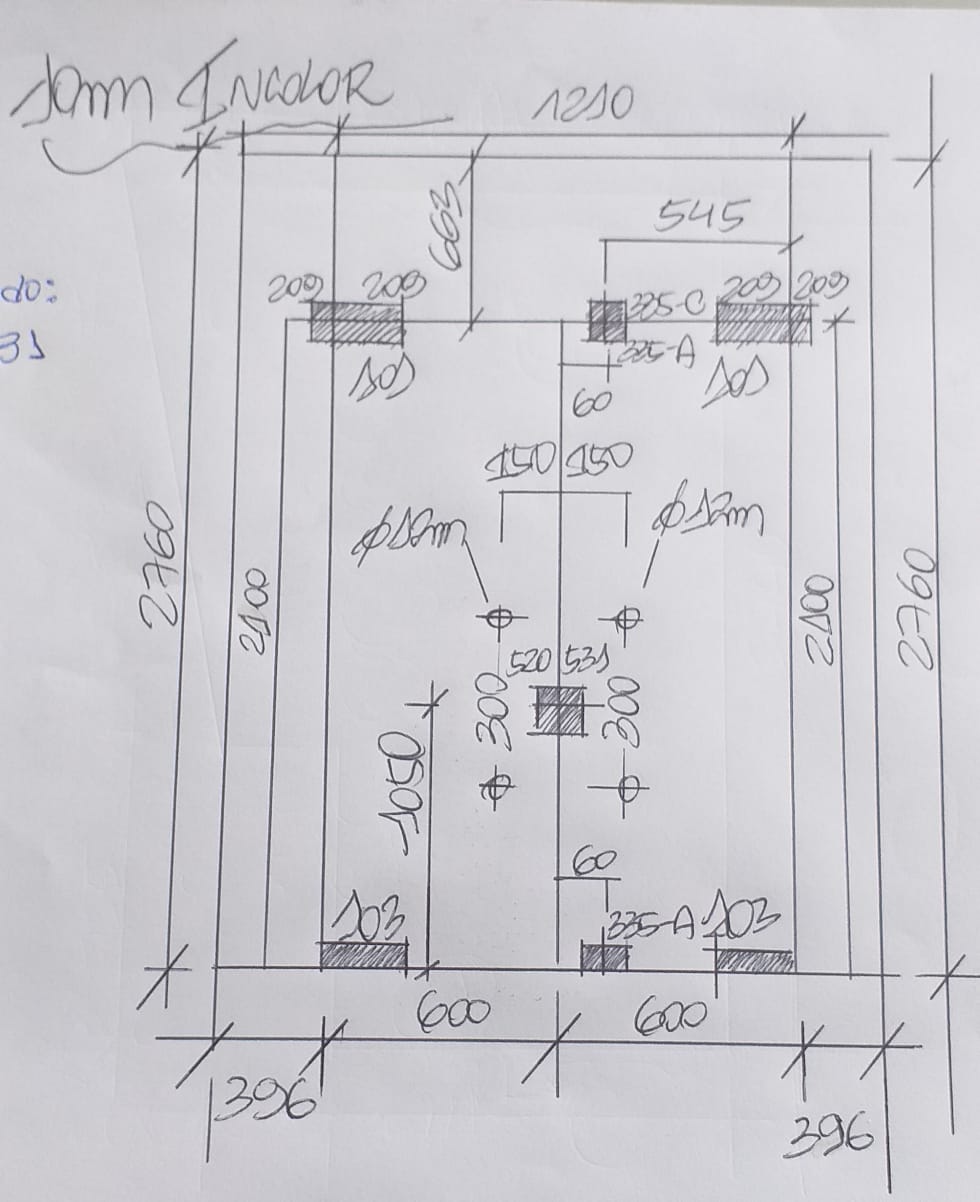 10mm INCOLOR
1210
663
545
do:
31
209 209
325-C
209 209
101
325-A
101
60
150 150
Ø12m
Ø12m
2760
2100
2100
2760
520 531
300
300
1050
60
103
335-A
103
600
600
396
396